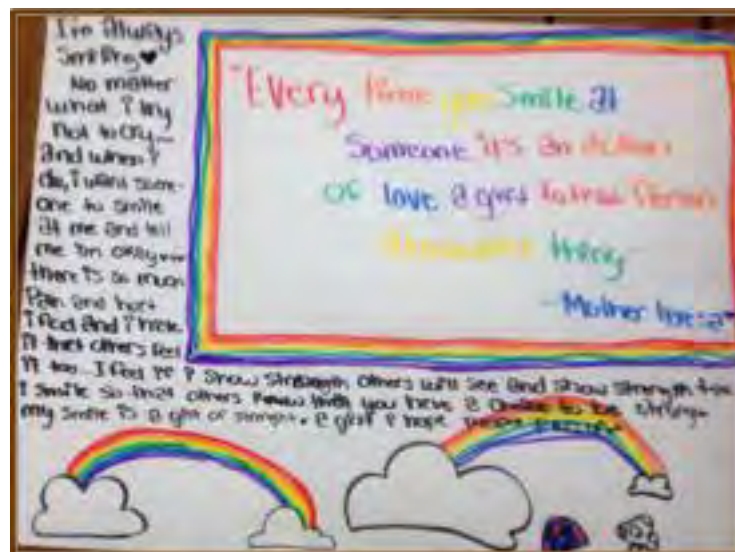 I'm Always
Smiling
No matter
what I try
not to cry
and when I
do, I want some-
one to smile
at me and tell
me I'm okay...
there is so much
Pain and hurt
I feel and I hate
that others feel
it too... I feel if I show strength others will see and show strength too
I smile so that others know that you have a choice to be strong.
my smile is a gift of strength. A gift I hope
"Every time you smile at
someone it's an action
of love a gift to that Person
a beautiful thing-
-Mother Teresa"